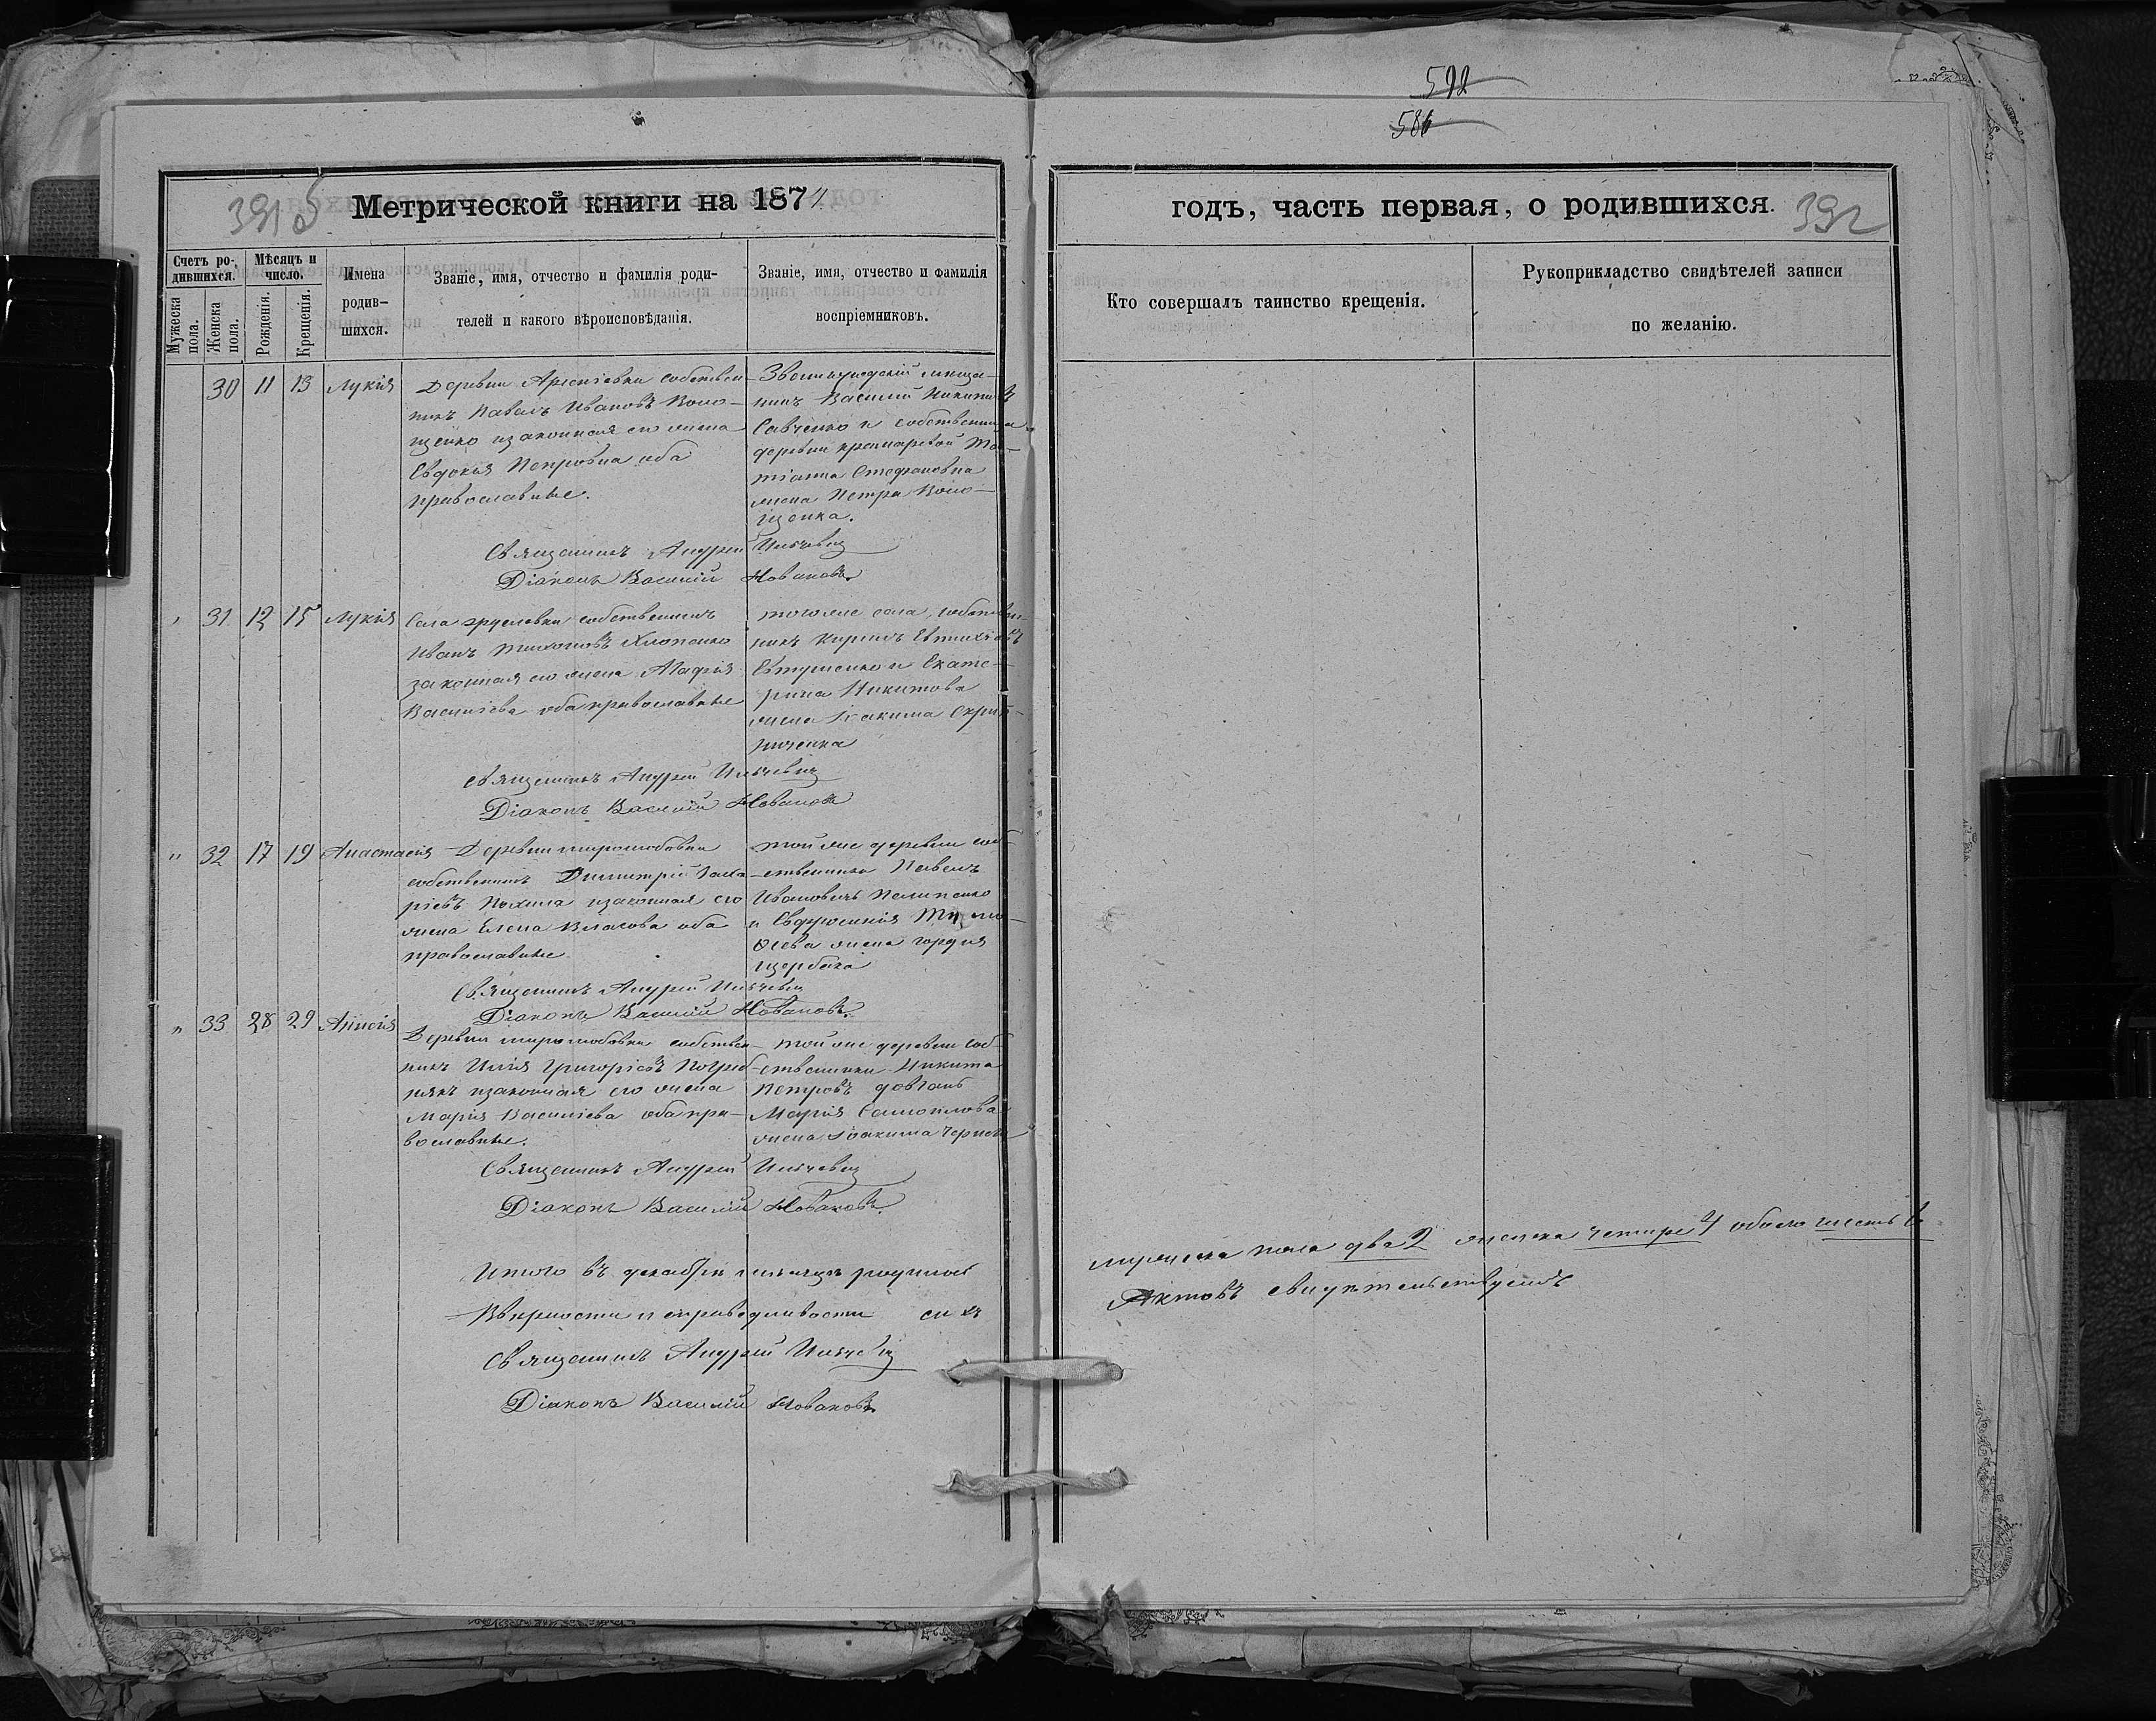 592
586
391 б
Метрической книги на 1871
годъ, часть первая, о родившихся.
392
Счетъ родившихся.
Мѣсяцъ и число.
Мужеска пола.
Женска пола.
Рожденія.
Крещенія.
Имена родившихся.
Званіе, имя, отчество и фамилія родителей и какого вѣроисповѣданія.
Званіе, имя, отчество и фамилія воспріемниковъ.
Кто совершалъ таинство крещенія.
Рукоприкладство свидѣтелей записи по желанію.
30 11 13 Лукія
Деревни Арсеніевки собствен-
никъ Павелъ Ивановъ Воло-
щенко изаконная его жена
Евдокія Петровна оба
православные.
мѣща-
нинъ Василій Никитинъ
Савченко и собственница
деревни Та-
тіанна Стефановна
жена Петра Воло-
щенка.
Священникъ Андрей
Діаконъ Василій Новаковъ.
31 12 15 Лукія
Села собственникъ
Иванъ Тихоновъ
законная его жена Марфа
Василіева оба православные
тогоже села собствен-
никъ Кирилъ Евтихіевъ
Евтушенко и Екате-
рина Никитова
жена Іоакима
Священникъ Андрей
Діаконъ Василій Новаковъ
" 32 17 19 Анастасія
Деревни Миролюбовки
собственникъ Димитрій Заха-
ріевъ изаконная его
жена Елена Власова оба
православные
тойже деревни соб-
ственники Павелъ
Ивановичъ Пилипенко
и Евфросинія Тимо-
ѳеева жена Гордія
Щербака
Священникъ Андрей
Діаконъ Василій Новаковъ.
" 33 28 29 Анисія
Деревни Миролюбовки собствен-
никъ Илія Григоріевъ
изаконная его жена
Марія Василіева оба пра-
вославные.
тойже деревни соб-
ственники Никита
Петровъ Довгань
Марія Самоилова
жена Іоакима
Священникъ Андрей
Діаконъ Василій Новаковъ.
Итого въ декабрѣ мѣсяцѣ родилось
мужеска пола два 2 женска четыре 4 обоего шесть 6
Въ вѣрности и справедливости сихъ
Актовъ свидѣтельствуемъ
Священникъ Андрей
Діаконъ Василій Новаковъ.